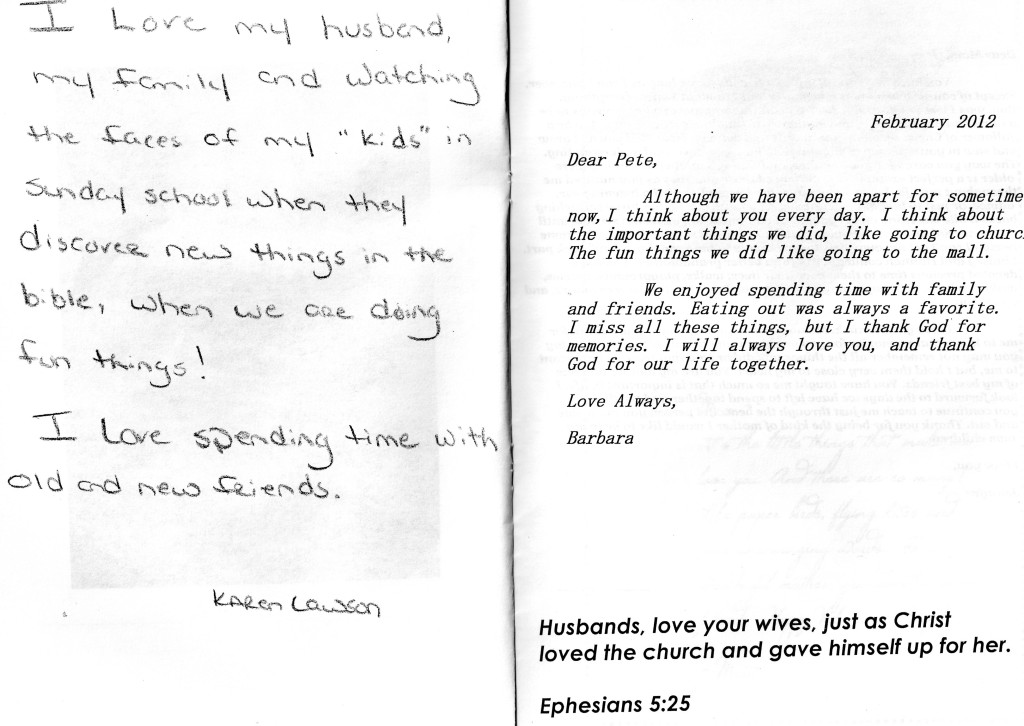 I Love my husband,
my family and watching
the faces of my "kids" in
Sunday school when they
discover new things in the
bible, when we are doing
fun things!
I Love spending time with
old and new friends.
Karen Lawson
February 2012
Dear Pete,
Although we have been apart for sometime
now, I think about you every day. I think about
the important things we did, like going to churc
The fun things we did like going to the mall.
We enjoyed spending time with family
and friends. Eating out was always a favorite.
I miss all these things, but I thank God for
memories. I will always love you, and thank
God for our life together.
Love Always,
Barbara
Husbands, love your wives, just as Christ
loved the church and gave himself up for her.
Ephesians 5:25